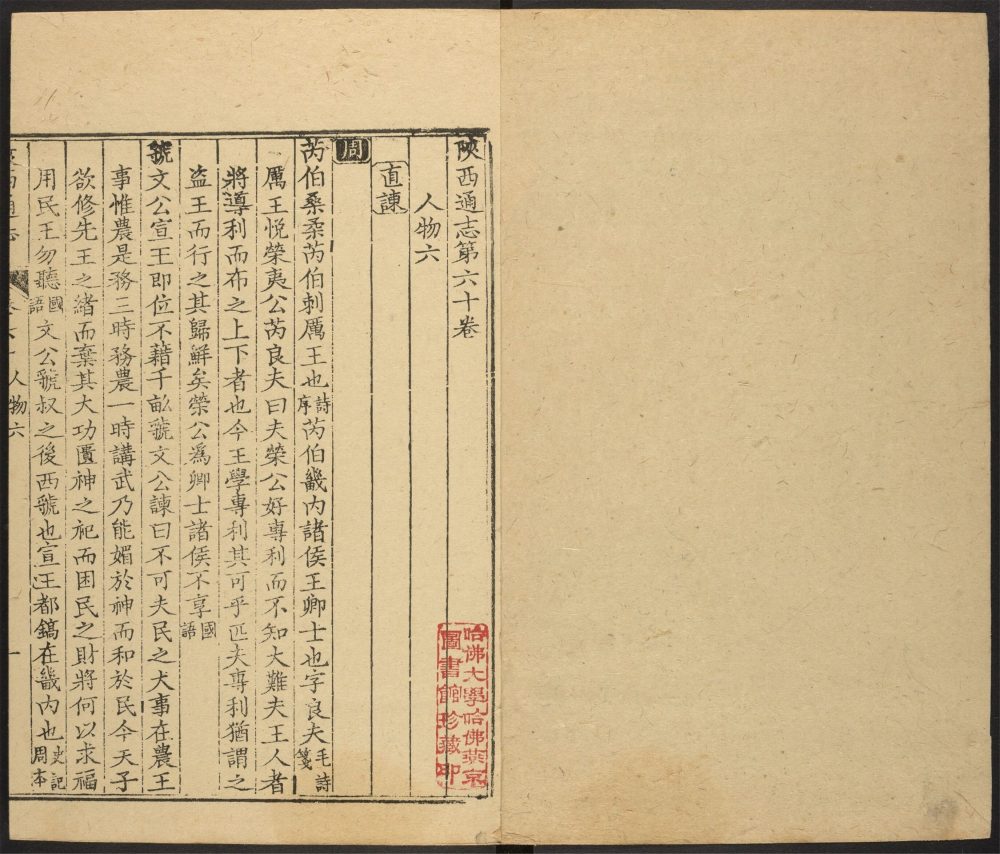 陝西通志第六十卷
人物六
直諫
周
芮伯桑柔芮伯刺厲王也詩序芮伯畿内諸侯王卿士也字良夫毛詩箋
厲王悅榮夷公芮良夫曰夫榮公好專利而不知大難夫王人者
將導利而布之上下者也今王學專利其可乎匹夫專利猶謂之
盗王而行之其歸鮮矣榮公爲卿士諸侯不享國語
虢文公宣王即位不藉千畝虢文公諫曰不可夫民之大事在農王
事惟農是務三時務農一時講武乃能媚於神而和於民今天子
欲修先王之緒而棄其大功匱神之祀而困民之財將何以求福
用民王勿聽國語文公虢叔之後西虢也宣王都鎬在畿内也史記周本
西通志
人物六
一
哈佛大學哈佛燕京
圖書館珍藏印